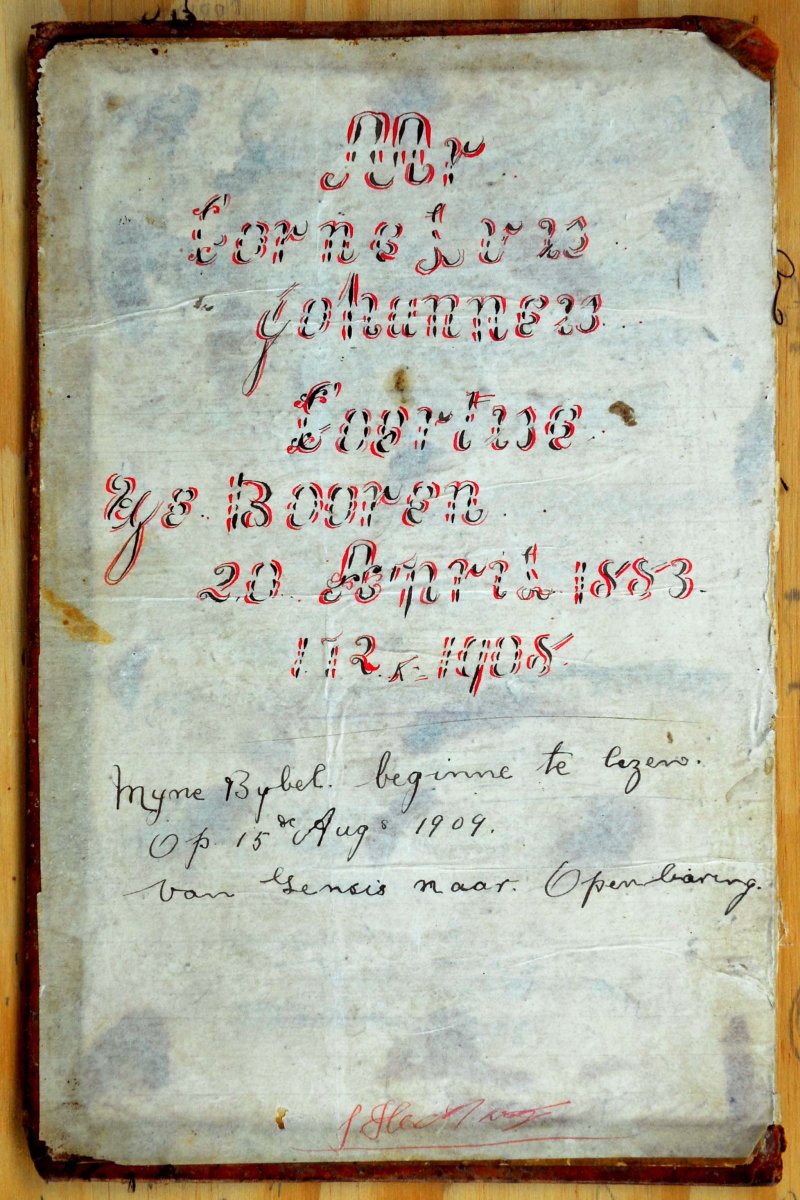 Mr
Cornelius
Johannes
Coertse
Ge Booren
20 April 1883.
1908
Myne Bybel. beginne te lezen.
Op 15de Augs 1909.
van Gensis naar. Openbaring.